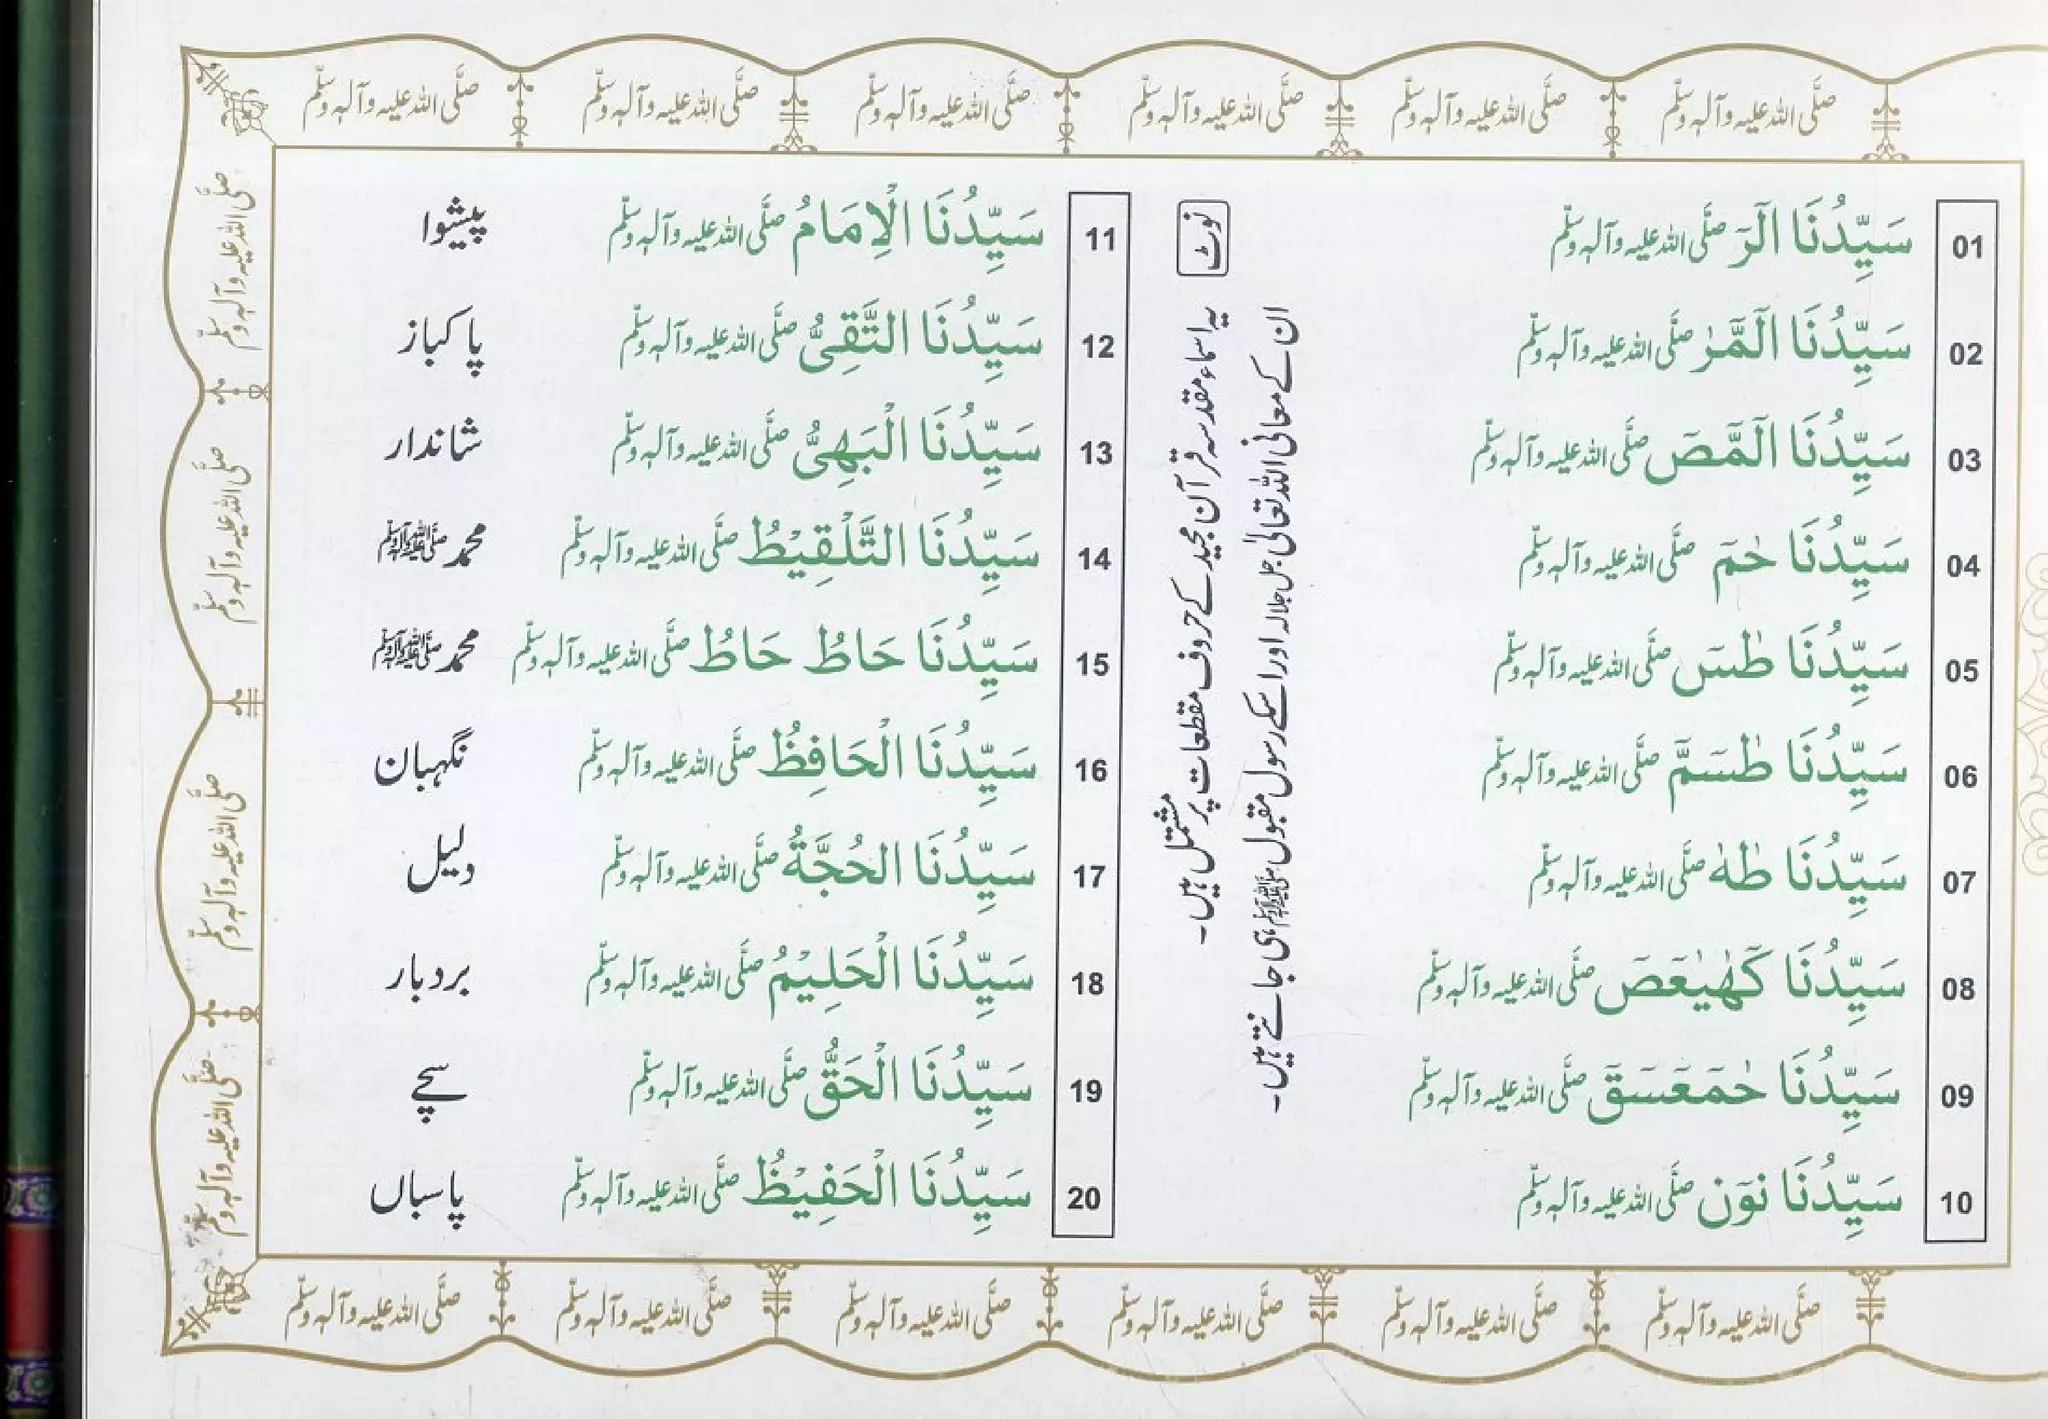 صلَّی اللہ علیہ وآلہٖ وسلّم صلَّی اللہ علیہ وآلہٖ وسلّم صلَّی اللہ علیہ وآلہٖ وسلّم صلَّی اللہ علیہ وآلہٖ وسلّم صلَّی اللہ علیہ وآلہٖ وسلّم صلَّی اللہ علیہ وآلہٖ وسلّم
01 سَیِّدُنَا الٓرٰ صلَّی اللہ علیہ وآلہٖ وسلّم
02 سَیِّدُنَا الٓمّٓرٰ صلَّی اللہ علیہ وآلہٖ وسلّم
03 سَیِّدُنَا الٓمّٓصٓ صلَّی اللہ علیہ وآلہٖ وسلّم
04 سَیِّدُنَا حٰمٓ صلَّی اللہ علیہ وآلہٖ وسلّم
05 سَیِّدُنَا طٰسٓ صلَّی اللہ علیہ وآلہٖ وسلّم
06 سَیِّدُنَا طٰسٓمّٓ صلَّی اللہ علیہ وآلہٖ وسلّم
07 سَیِّدُنَا طٰہٰ صلَّی اللہ علیہ وآلہٖ وسلّم
08 سَیِّدُنَا کٓھٰیٰعٓصٓ صلَّی اللہ علیہ وآلہٖ وسلّم
09 سَیِّدُنَا حٰمٓعٓسٓقٓ صلَّی اللہ علیہ وآلہٖ وسلّم
10 سَیِّدُنَا نوٓن صلَّی اللہ علیہ وآلہٖ وسلّم
نوٹ
یہ اسماء مقدسہ قرآن مجید کے حروف مقطعات پر مشتمل ہیں۔
ان کے معانی اللہ تعالیٰ جل جلالہ اور اسکے رسول مقبول ﷺ ہی جانتے ہیں۔
11 سَیِّدُنَا الْاِمَامُ صلَّی اللہ علیہ وآلہٖ وسلّم پیشوا
12 سَیِّدُنَا التَّقِیُّ صلَّی اللہ علیہ وآلہٖ وسلّم پاکباز
13 سَیِّدُنَا الْبَھِیُّ صلَّی اللہ علیہ وآلہٖ وسلّم شاندار
14 سَیِّدُنَا التَّلْقِیْطُ صلَّی اللہ علیہ وآلہٖ وسلّم محمد ﷺ
15 سَیِّدُنَا حَاطُ حَاطُ صلَّی اللہ علیہ وآلہٖ وسلّم محمد ﷺ
16 سَیِّدُنَا الْحَافِظُ صلَّی اللہ علیہ وآلہٖ وسلّم نگہبان
17 سَیِّدُنَا الحُجَّۃُ صلَّی اللہ علیہ وآلہٖ وسلّم دلیل
18 سَیِّدُنَا الْحَلِیْمُ صلَّی اللہ علیہ وآلہٖ وسلّم بردبار
19 سَیِّدُنَا الْحَقُّ صلَّی اللہ علیہ وآلہٖ وسلّم سچے
20 سَیِّدُنَا الْحَفِیْظُ صلَّی اللہ علیہ وآلہٖ وسلّم پاسباں
صلَّی اللہ علیہ وآلہٖ وسلّم
صلَّی اللہ علیہ وآلہٖ وسلّم
صلَّی اللہ علیہ وآلہٖ وسلّم
صلَّی اللہ علیہ وآلہٖ وسلّم
صلَّی اللہ علیہ وآلہٖ وسلّم صلَّی اللہ علیہ وآلہٖ وسلّم صلَّی اللہ علیہ وآلہٖ وسلّم صلَّی اللہ علیہ وآلہٖ وسلّم صلَّی اللہ علیہ وآلہٖ وسلّم صلَّی اللہ علیہ وآلہٖ وسلّم